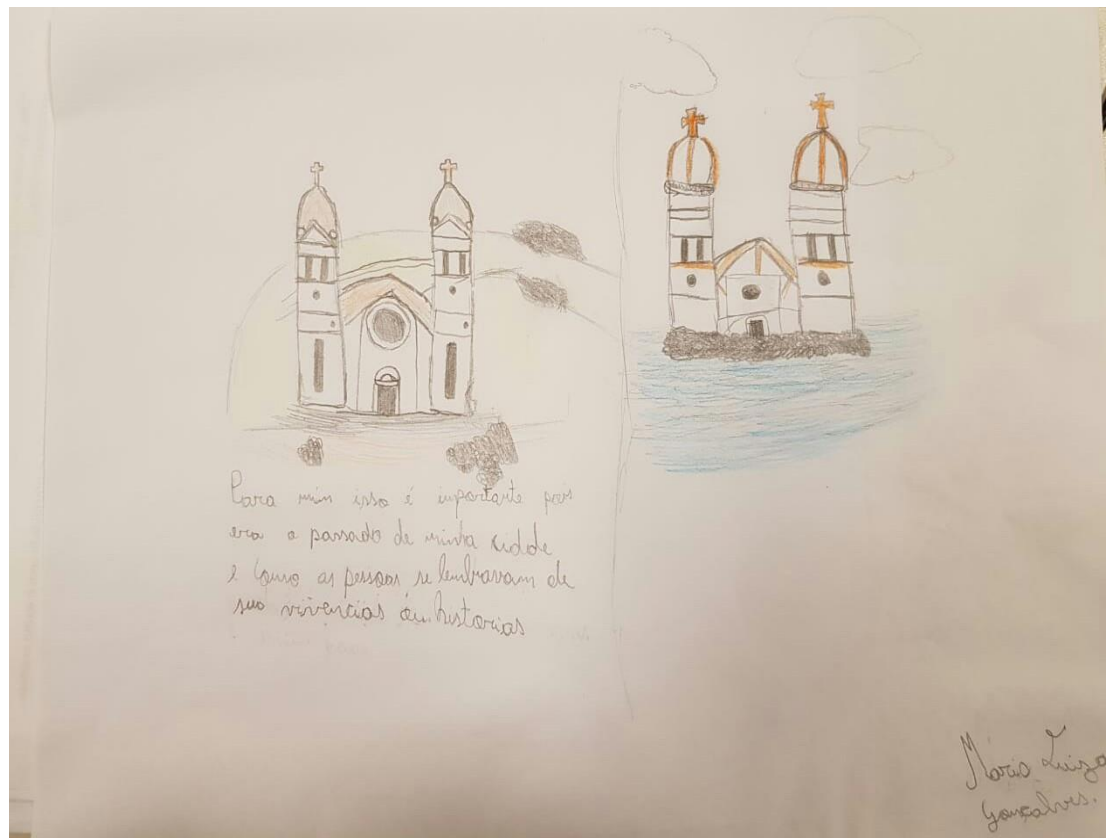 Para min isso é importante pois
era o passado de minha cidde
e como as pessoas se lembravam de
suo vivencias óu historias
Maria Luiza
Gonçalves.